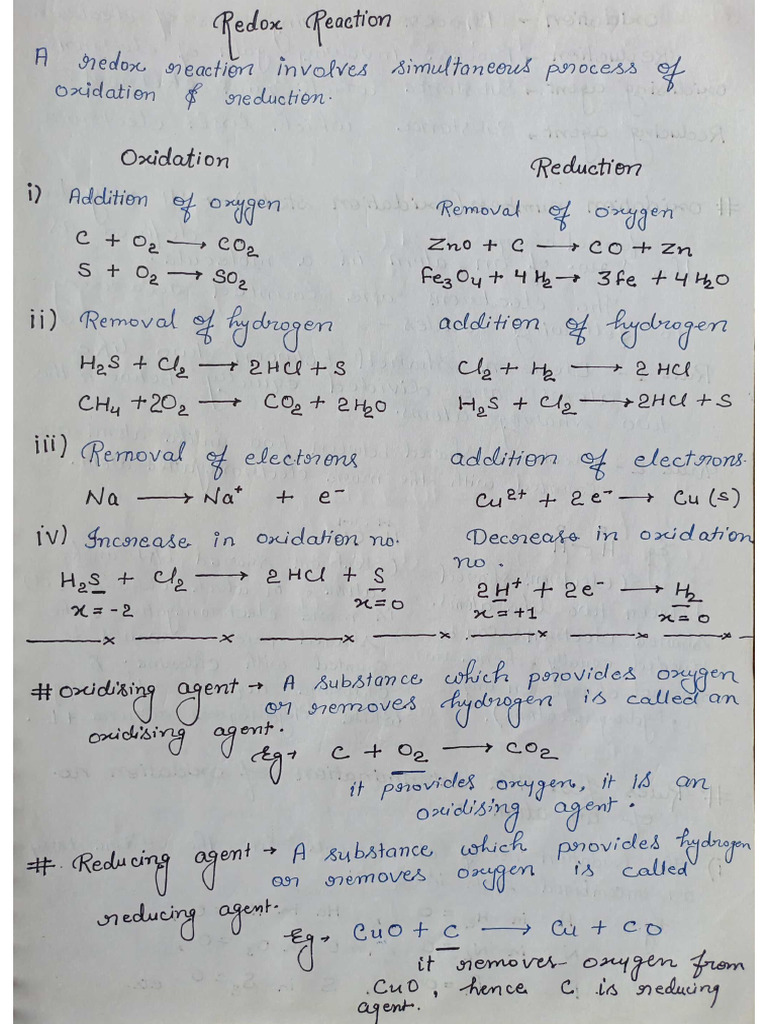 Redox Reaction
A redox reaction involves simultaneous process of
oxidation & reduction.
Oxidation
Reduction
i) Addition of oxygen
Removal of oxygen
C + O₂ → CO₂
ZnO + C → CO + Zn
S + O₂ → SO₂
Fe₃O₄ + 4H₂ → 3Fe + 4H₂O
ii) Removal of hydrogen
addition of hydrogen
H₂S + Cl₂ → 2HCl + S
Cl₂ + H₂ → 2 HCl
CH₄ + 2O₂ → CO₂ + 2H₂O
H₂S + Cl₂ → 2HCl + S
iii) Removal of electrons
addition of electrons.
Na → Na⁺ + e⁻
Cu²⁺ + 2e⁻ → Cu(s)
iv) Increase in oxidation no.
Decrease in oxidation
no.
H₂S + Cl₂ → 2 HCl + S
2H⁺ + 2e⁻ → H₂
x = -2 x = 0
x = +1 x = 0
# Oxidising agent → A substance which provides oxygen
or removes hydrogen is called an
oxidising agent.
Eg → C + O₂ → CO₂
it provides oxygen, it is an
oxidising agent.
# Reducing agent → A substance which provides hydrogen
or removes oxygen is called
reducing agent.
Eg → CuO + C → Cu + CO
it removes oxygen from
CuO, hence C is reducing
agent.